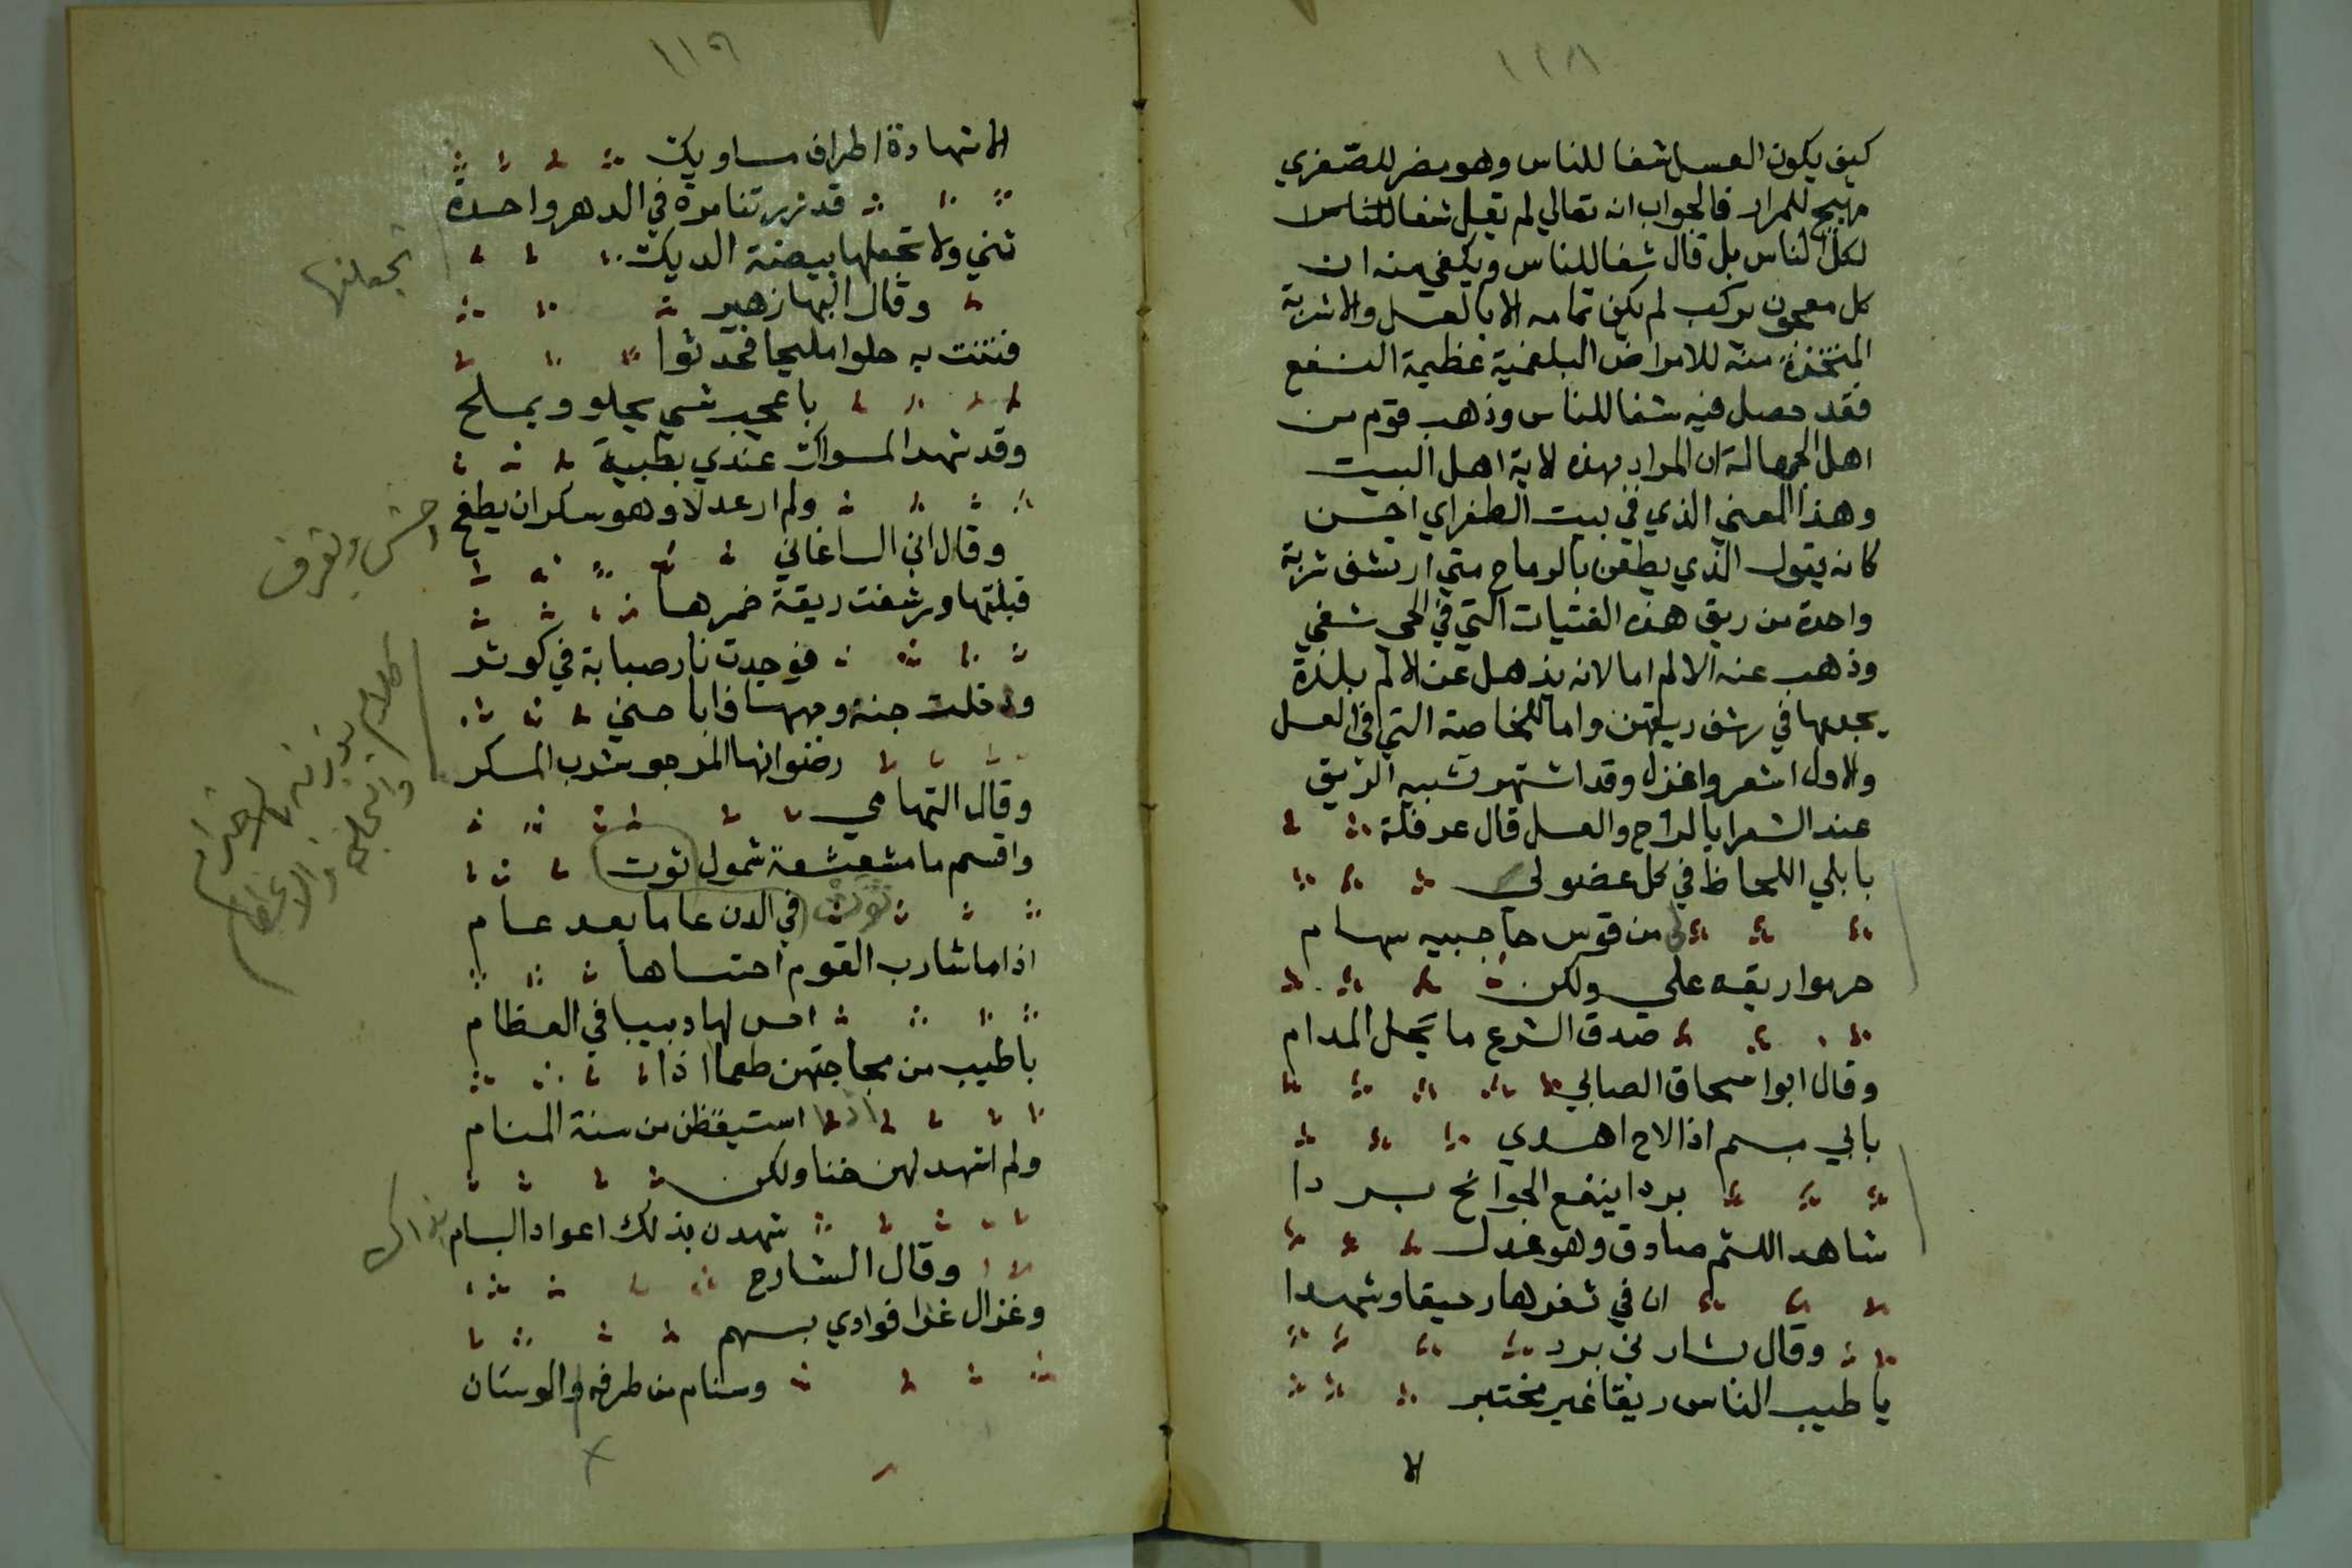 ١١٨
كيف يكون العسل شفا للناس وهو مضر للصّفري
مهيج للمرار فالجواب انه تعالي لم يقل شفا للناس
لكل الناس بل قال شفا للناس ويكفي منه ان
كل معجون مركب لم يكن تمامه الا بالعسل والاشربة
المتخذة منه للامراض البلغمية عظيمة النفع
فقد حصل فيه شفا للناس وذهب قوم من
اهل الجهالة ان المراد بهذه لاية اهل البيت
وهذا المعني الذي في بيت الطغراي احسن
كانه يقول الذي يطعن بالرماح متي ارتشف شربة
واحدة من ريق هذه الفتيات التي في الحي شفي
وذهب عنه الالم اما لانه يذهل عن لالم بلذة
يجدها في رشف ريقهن واما للخاصية التي في العسل
والاول اشعر واغزل وقد اشتهر تشبيه الريق
عند الشعرا بالراح والعسل قال عرقلة
بابلي اللحاظ في كل عضو لي
من قوس حاجبيه سهام
حرموا ريقه علي ولكن
صدق الشرع ما يحل المدام
وقال ابوا سحاق الصابي
بابي مبسم اذا لاح اهدي
بردا ينفع الجوانح بردا
شاهد اللثم صادق وهو عدل
ان في ثغرها رحيقا وشهدا
وقال بشار بن برد
يا طيب الناس ريقا غير مختبر
لا
١١٩
الا شهادة اطراف مساويك
قد زرتنا مرة في الدهر واحدة
ثني ولا تجعلها بيضة الديك
تجعلنها
وقال البها زهير
فتنت به حلوا مليحا فحدثوا
باعجب شي يحلو ويملح
وقد شهد المسواك عندي بطيبه
ولم ار عدلا وهو سكران يطفح
وقال ابن الساعاتي
قبلتها ورشفت ريقة خمرها
فوجدت نار صبابة في كوثر
ودخلت جنة وجهها فاباحني
رضوانها المرجو شرب المسكر
وقال التهامي
واقسم ما مشعشعة شمول ثوت
ثوت في الدن عاما بعد عام
اذا ما شارب القوم احتساها
احس لها دبيبا في العظام
باطيب من مجاجتهن طعما اذا
اذا استيقظن من سنة المنام
ولم اشهد لهن جنا ولكن
شهدن بذلك اعواد البشام
بذاك
وقال الشارح
وغزال غزا فوادي بسهم
وسنام من طرفه والوسنان